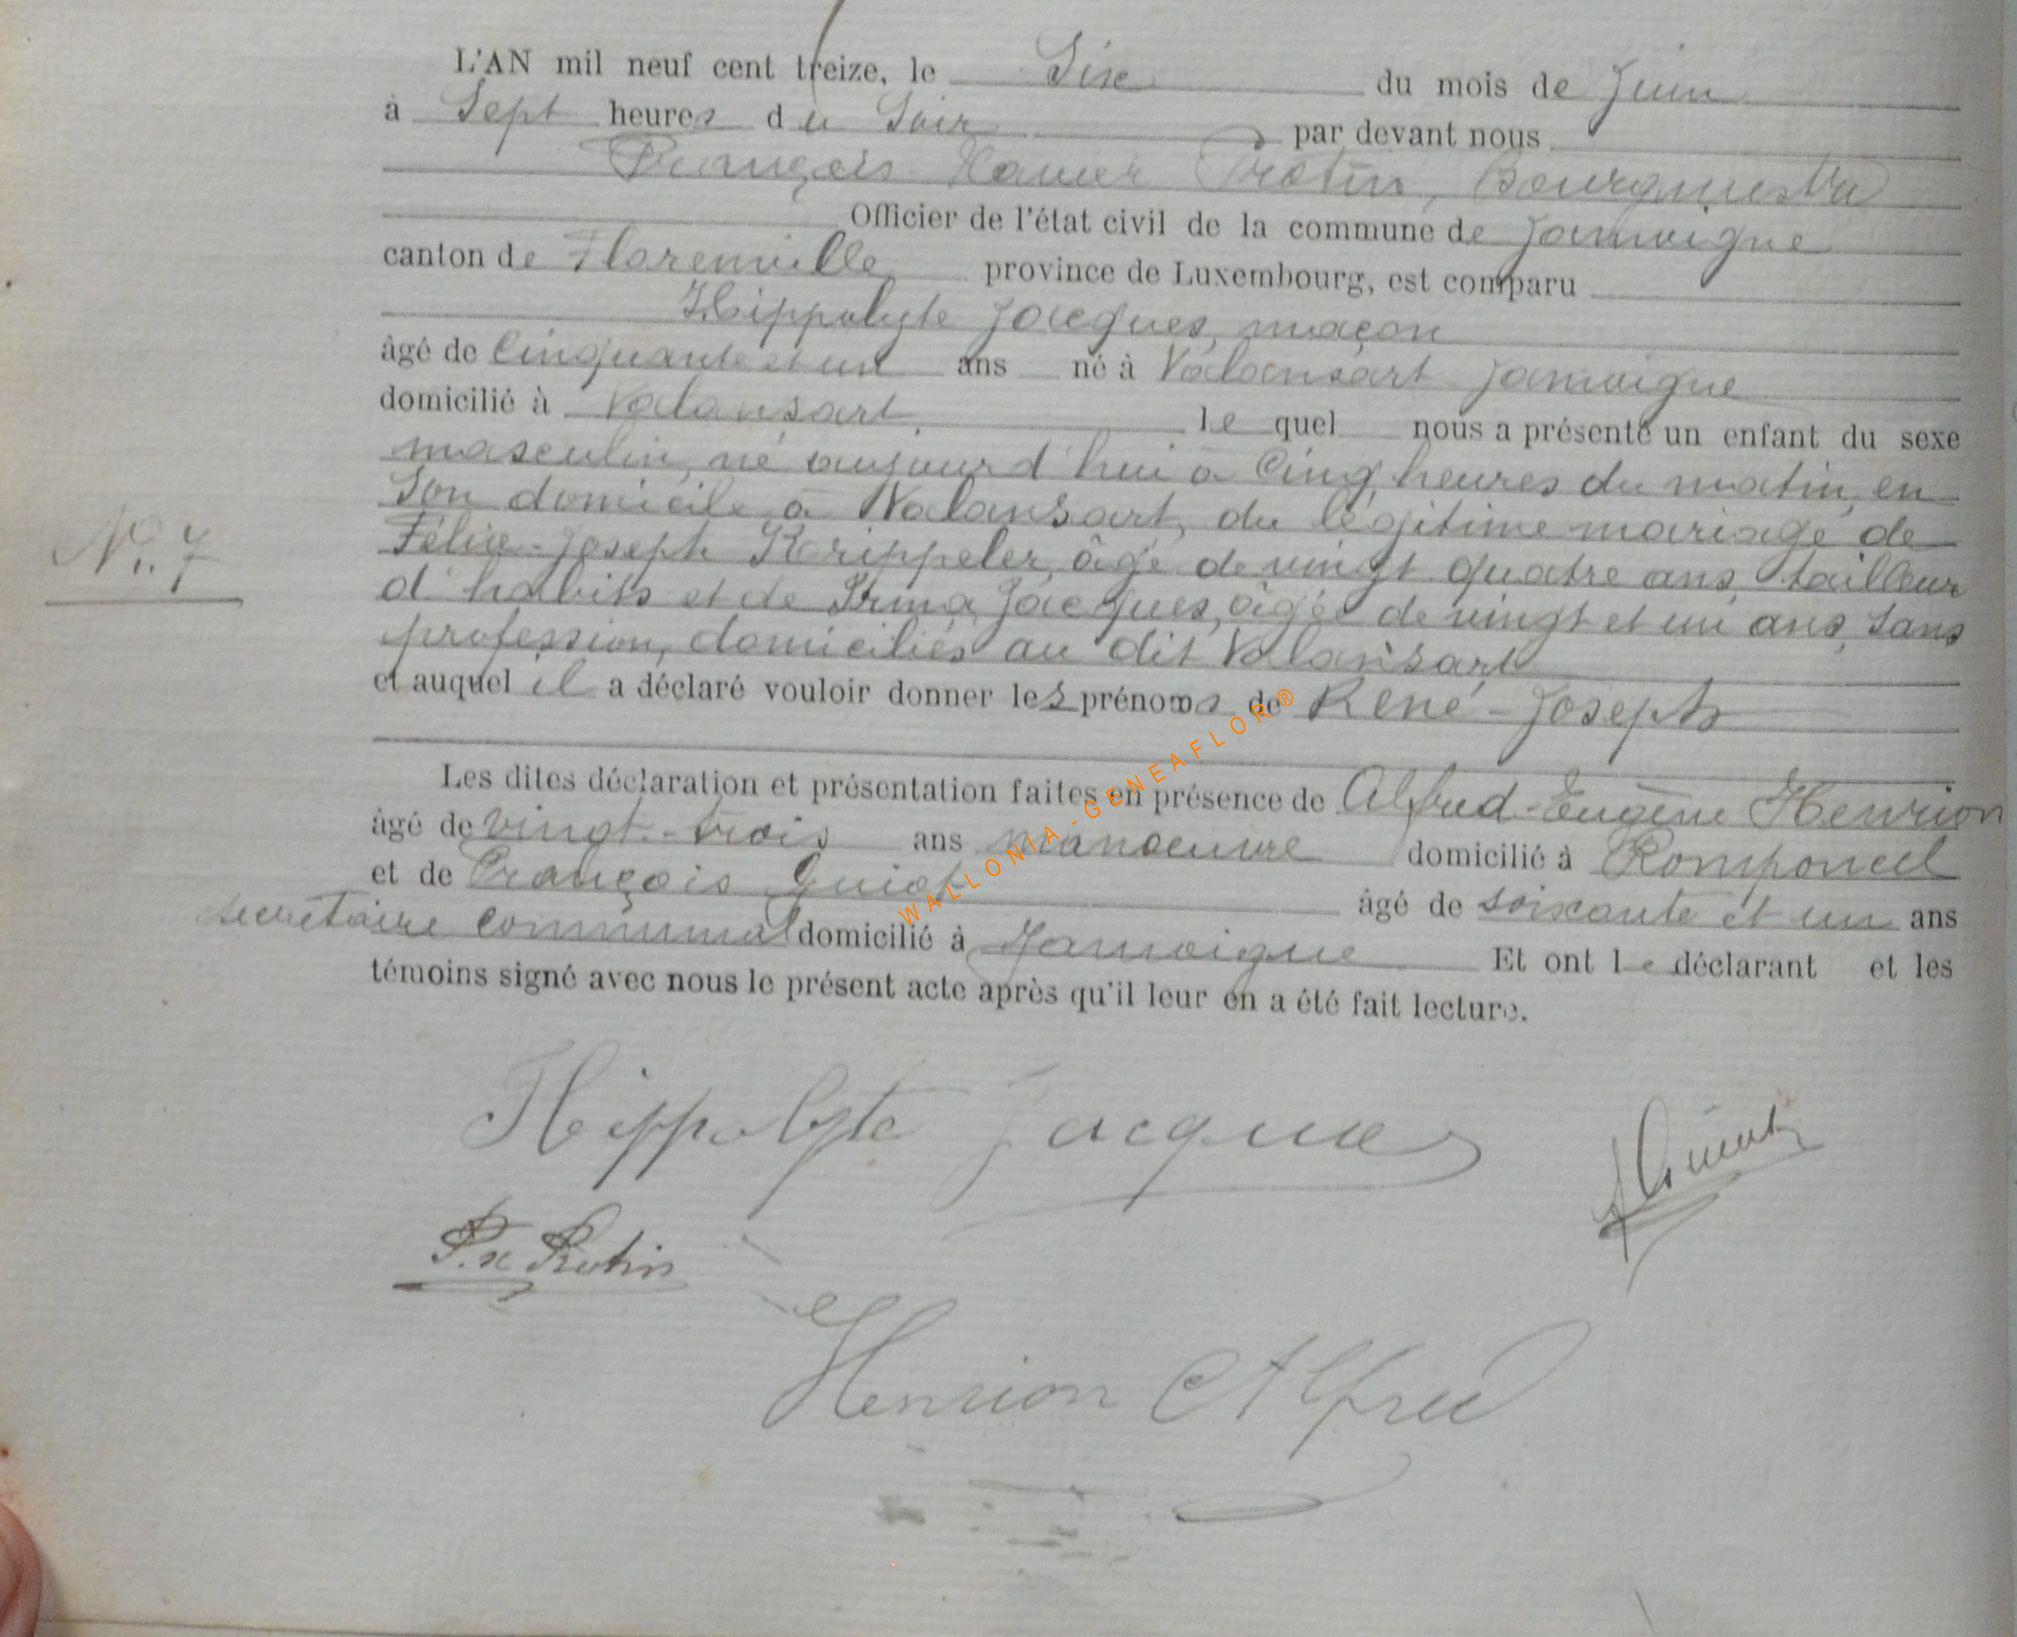 L'AN mil neuf cent treize, le Six du mois de Juin
à Sept heures du Soir par devant nous
François Xavier Protin, Bourgmestre
Officier de l'état civil de la commune de Jamoigne
canton de Florenville province de Luxembourg, est comparu
Hippolyte Jacques, maçon
âgé de Cinquante et un ans né à Valansart Jamoigne
domicilié à Valansart, lequel nous a présenté un enfant du sexe
masculin, né aujourd'hui à Cinq heures du matin, en
Son domicile à Valansart, du légitime mariage de
N°. 7
Félix-Joseph Krippeler, âgé de vingt quatre ans, tailleur
d'habits et de Irma Jacques, âgée de vingt et un ans, Sans
profession, domiciliés au dit Valansart
et auquel il a déclaré vouloir donner les prénoms de René-Joseph
Les dites déclaration et présentation faites en présence de Alfred-Eugène Henrion
âgé de vingt-trois ans manoeuvre domicilié à Romponcel
et de François Guiot âgé de soixante et un ans
secrétaire communal domicilié à Jamoigne Et ont le déclarant et les
témoins signé avec nous le présent acte après qu'il leur en a été fait lecture.
WALLONIA-GENEAFLOR®
Hippolyte Jacques
Fx Protin
Henrion Alfred